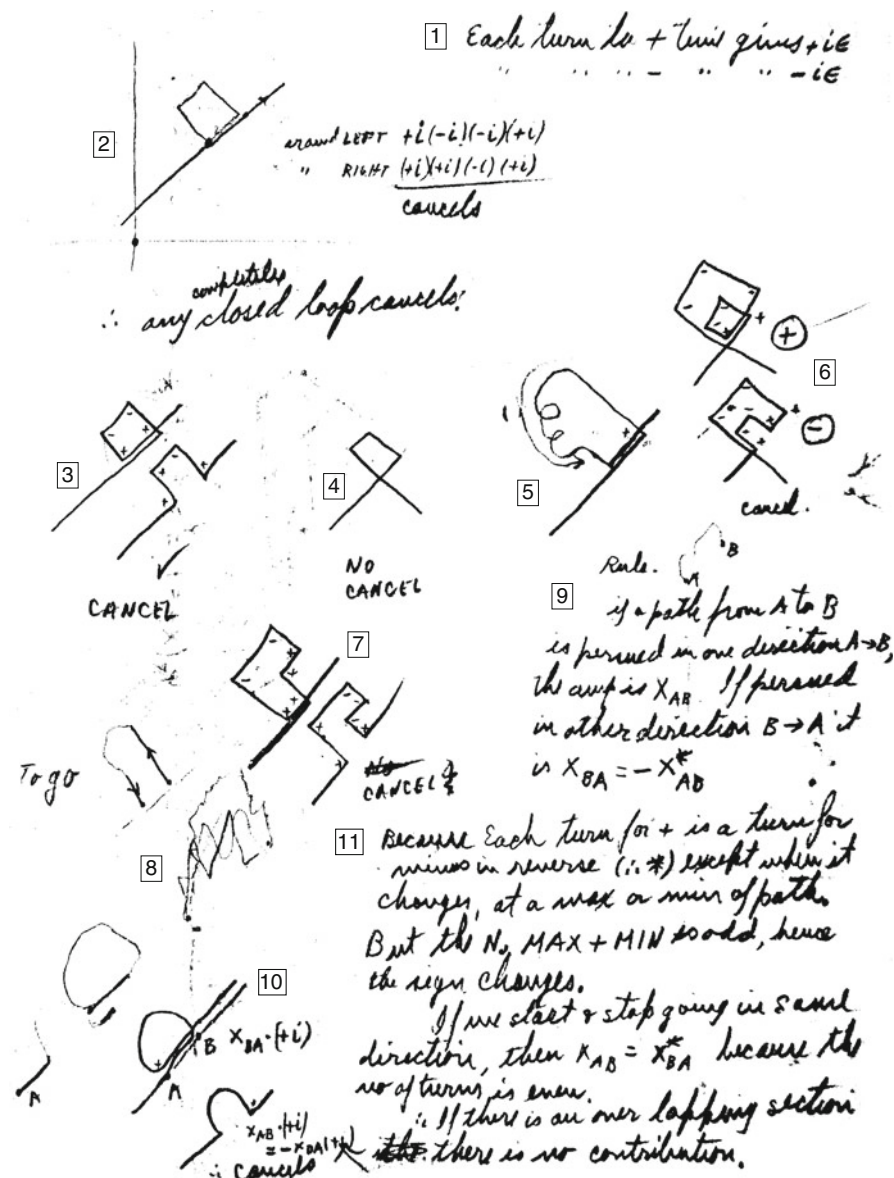 1 Each turn to + time gives +iϵ
" " " - " " -iϵ
2
around LEFT +i(-i)(-i)(+i)
" RIGHT (+i)(+i)(-i)(+i)
cancels
completely
∴ any closed loop cancels!
3
CANCEL
4
NO
CANCEL
5
6
+
-
cancel.
7
To go
CANCEL
8
9 Rule.
A B
if a path from A to B
is persued in one direction A→B,
the amp is X_AB If persued
in other direction B→A it
is X_BA = -X*_AB
10
A
A B X_BA·(+i)
X_AB·(+i)
= -X_BA(+i)
∴ Cancels
11 Because Each turn for + is a turn for
minus in reverse (∴ *) except when it
changes, at a max or min of path.
But the No, MAX + MIN is odd, hence
the sign changes.
If we start & stop going in same
direction, then X_AB = X*_BA because the
no of turns is even.
∴ If there is an over lapping section
there is no contribution.